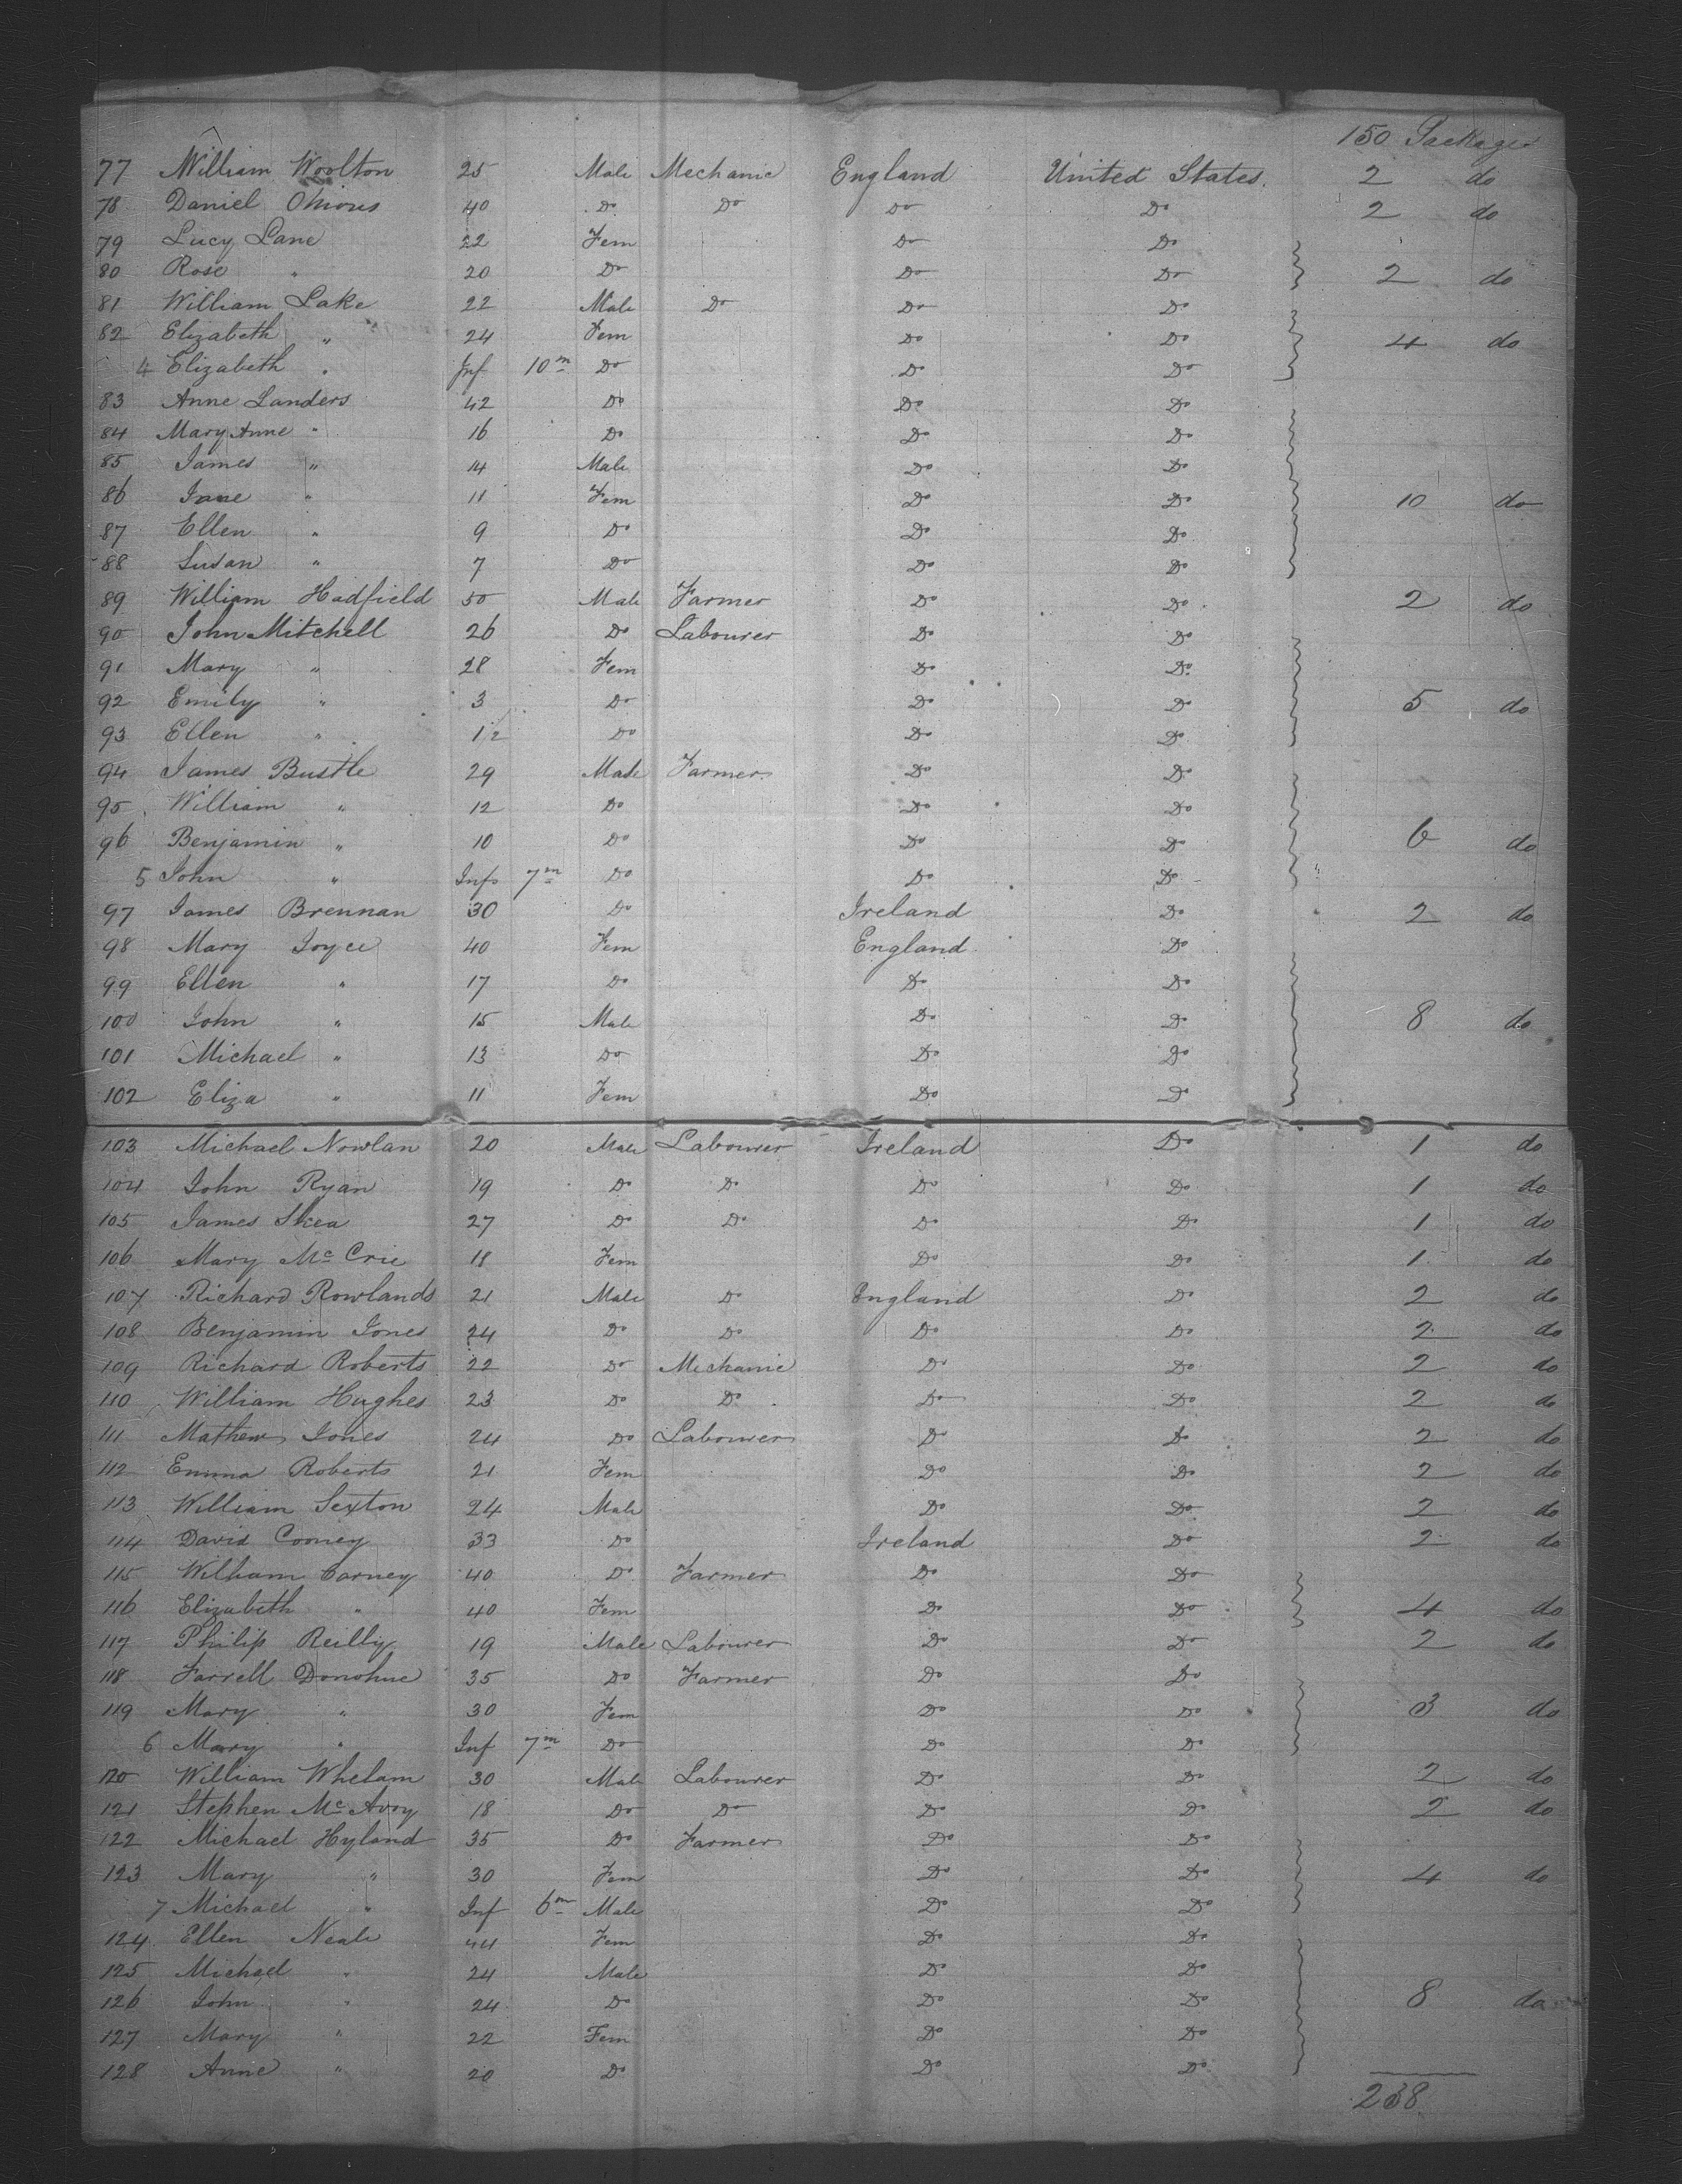 150 Packages
77 William Woolton 25 Male Mechanic England United States. 2 do
78 Daniel 40 Do Do Do Do 2 do
79 Lucy Lane 22 Fem Do Do
80 Rose " 20 Do Do Do 2 do
81 William Lake 22 Male Do Do Do
82 Elizabeth " 24 Fem Do Do 4 do
4 Elizabeth " Inf 10m Do Do Do
83 Anne Landers 42 Do Do Do
84 Mary Anne " 16 Do Do Do
85 James " 14 Male Do Do
86 Jane " 11 Fem Do Do 10 do
87 Ellen " 9 Do Do Do
88 Susan " 7 Do Do Do
89 William Hadfield 50 Male Farmer Do Do 2 do
90 John Mitchell 26 Do Labourer Do Do
91 Mary " 28 Fem Do Do
92 Emily " 3 Do Do Do 5 do
93 Ellen " 1/2 Do Do Do
94 James Bustle 29 Male Farmer Do Do
95 William " 12 Do Do Do
96 Benjamin " 10 Do Do Do 6 do
5 John " Inf 7m Do Do Do
97 James Brennan 30 Do Ireland Do 2 do
98 Mary Joyce 40 Fem England Do
99 Ellen " 17 Do Do Do
100 John " 15 Male Do Do 8 do
101 Michael " 13 Do Do Do
102 Eliza " 11 Fem Do Do
103 Michael Nowlan 20 Male Labourer Ireland Do 1 do
104 John Ryan 19 Do Do Do Do 1 do
105 James Skea 27 Do Do Do Do 1 do
106 Mary Mc Crie 18 Fem Do Do 1 do
107 Richard Rowlands 21 Male Do England Do 2 do
108 Benjamin Jones 24 Do Do Do Do 2 do
109 Richard Roberts 22 Do Mechanic Do Do 2 do
110 William Hughes 23 Do Do Do Do 2 do
111 Mathew Jones 24 Do Labourer Do Do 2 do
112 Emma Roberts 21 Fem Do Do 2 do
113 William Sexton 24 Male Do Do 2 do
114 David Cooney 33 Do Ireland Do 2 do
115 William Carney 40 Do Farmer Do Do
116 Elizabeth " 40 Fem Do Do 4 do
117 Philip Reilly 19 Male Labourer Do Do 2 do
118 Farrell Donohue 35 Do Farmer Do Do
119 Mary " 30 Fem Do Do 3 do
6 Mary " Inf 7m Do Do Do
120 William Whelam 30 Male Labourer Do Do 2 do
121 Stephen Mc Avoy 18 Do Do Do Do 2 do
122 Michael Hyland 35 Do Farmer Do Do
123 Mary " 30 Fem Do Do 4 do
7 Michael " Inf 6m Male Do Do
124 Ellen Neale 44 Fem Do Do
125 Michael " 24 Male Do Do
126 John " 24 Do Do Do 8 do
127 Mary " 22 Fem Do Do
128 Anne " 20 Do Do Do
238